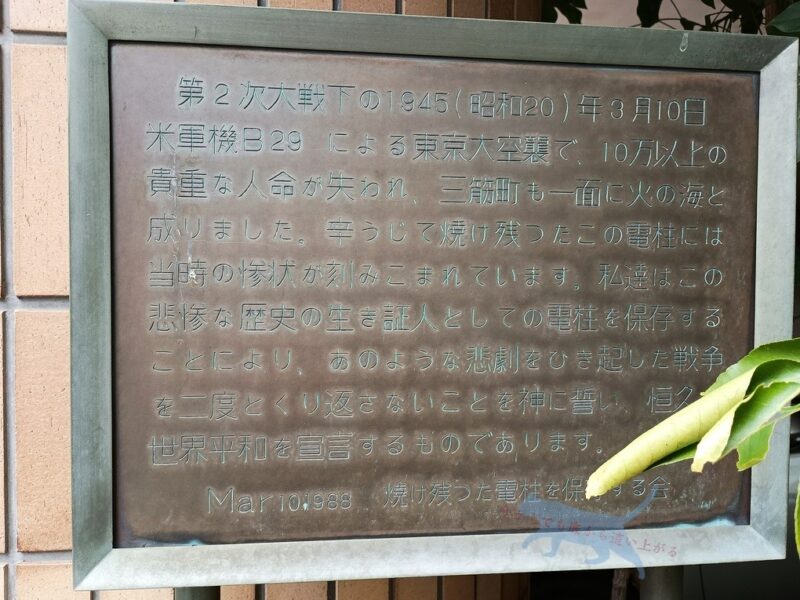 第2次大戦下の1945(昭和20)年3月10日
米軍機B29 による東京大空襲で、10万以上の
貴重な人命が失われ、三筋町も一面に火の海と
成りました。辛うじて焼け残つたこの電柱には
当時の惨状が刻みこまれています。私達はこの
悲惨な歴史の生き証人としての電柱を保存する
ことにより、あのような悲劇をひき起した戦争
を二度とくり返さないことを神に誓い、恒久
世界平和を宣言するものであります。
Mar 10,1988 焼け残つた電柱を保 する会
でも頭から這い上がる